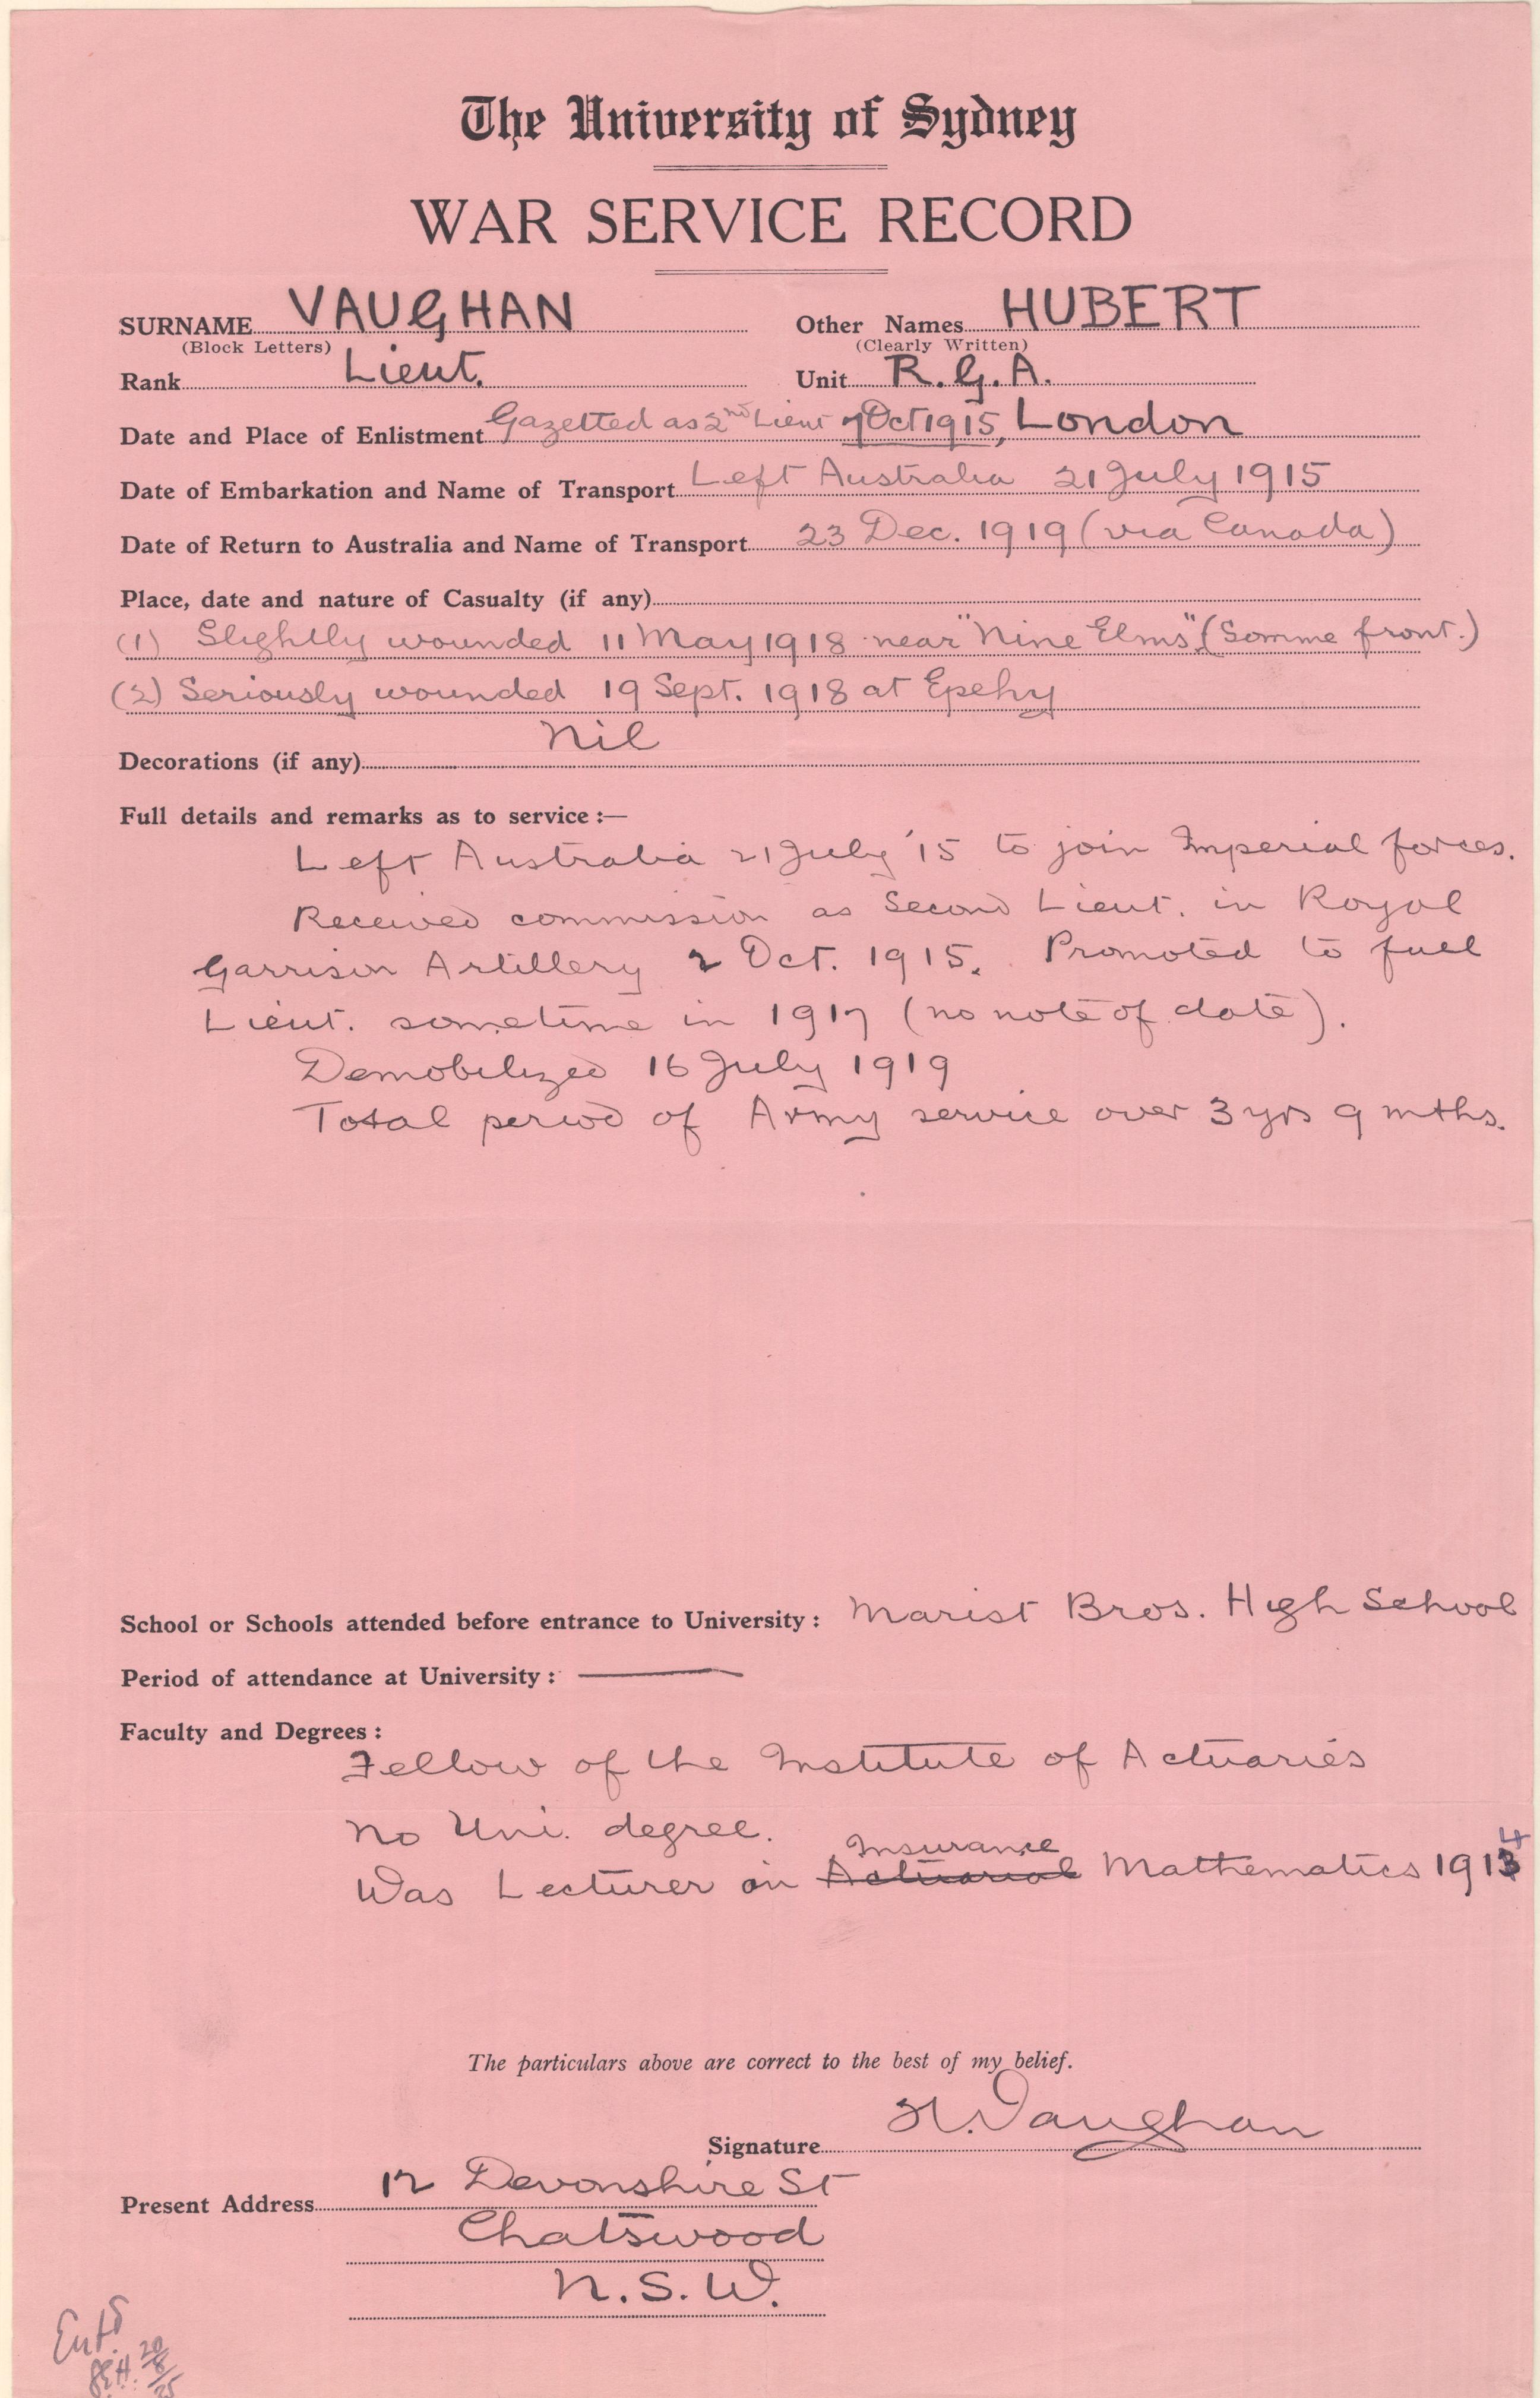 The University of Sydney
WAR SERVICE RECORD
SURNAME VAUGHAN Other Names HUBERT
(Block Letters) (Clearly Written)
Rank Lieut. Unit R.G.A.
Date and Place of Enlistment Gazetted as 2nd Lieut Oct 1915, London
Date of Embarkation and Name of Transport Left Australia 21 July 1915
Date of Return to Australia and Name of Transport 23 Dec. 1919 (via Canada)
Place, date and nature of Casualty (if any)
(1) Slightly wounded 11 May 1918 near "Nine Elms" (Somme front.)
(2) Seriously wounded 19 Sept. 1918 at Epehy
Decorations (if any) Nil
Full details and remarks as to service :—
Left Australia 21 July '15 to join Imperial forces.
Received commission as Second Lieut. in Royal
Garrison Artillery Oct. 1915. Promoted to full
Lieut. sometime in 1917 (no note of date).
Demobilized 16 July 1919
Total period of Army service over 3 yrs 9 mths.
School or Schools attended before entrance to University : Marist Bros. High School
Period of attendance at University : —
Faculty and Degrees :
Fellow of the Institute of Actuaries
No Uni. degree.
Insurance
Was Lecturer in Actuarial Mathematics 1914
The particulars above are correct to the best of my belief.
Signature H. Vaughan
Present Address 12 Devonshire St
Chatswood
N.S.W.
Entd
20/8/25